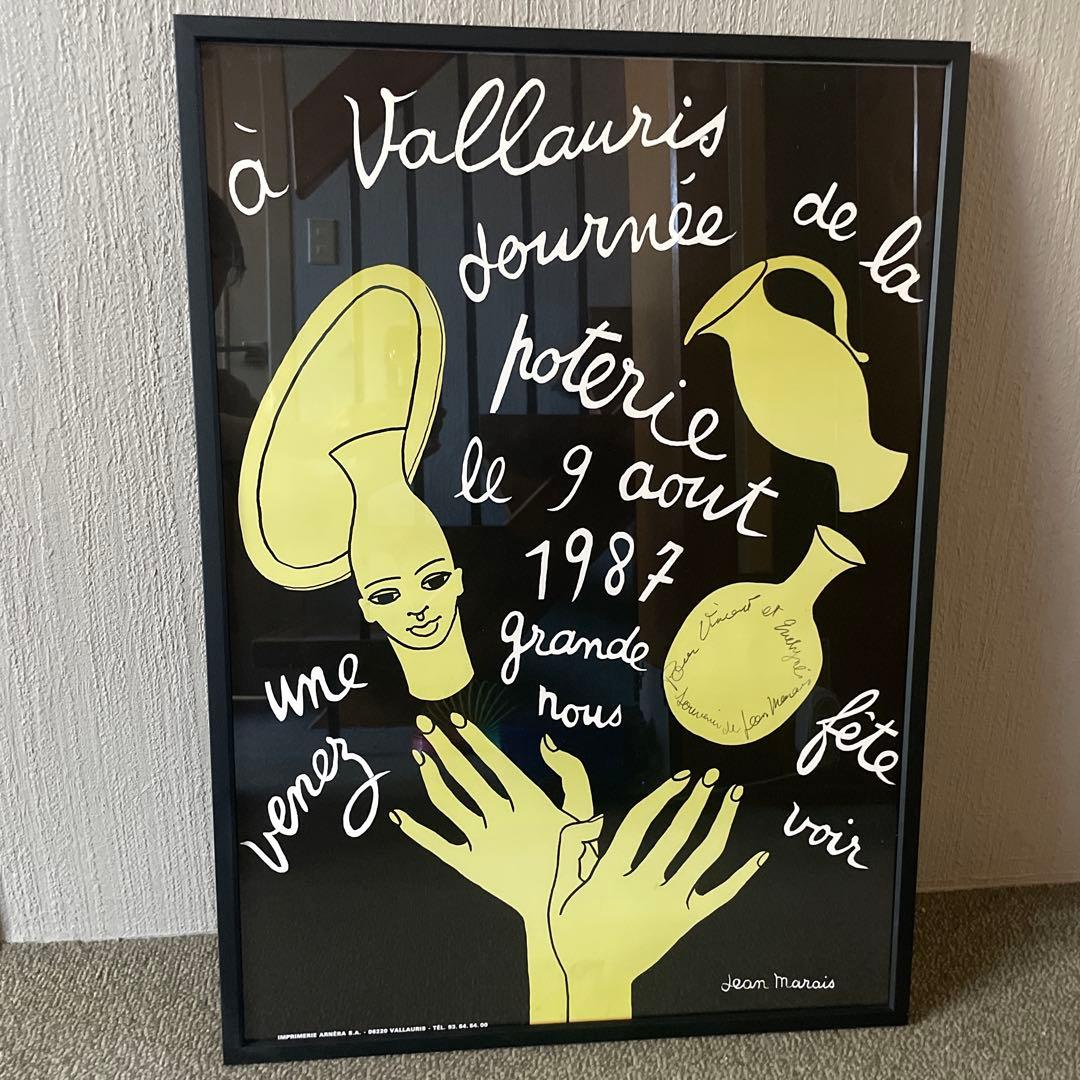 à Vallauris
Journée de la
poterie
le 9 aout
1987
une grande fête
venez nous voir
Pour Vincent et
souvenir de Jean Marais
Jean Marais
IMPRIMERIE ARNÉRA S.A. - 06220 VALLAURIS - TÉL. 93.64.64.00